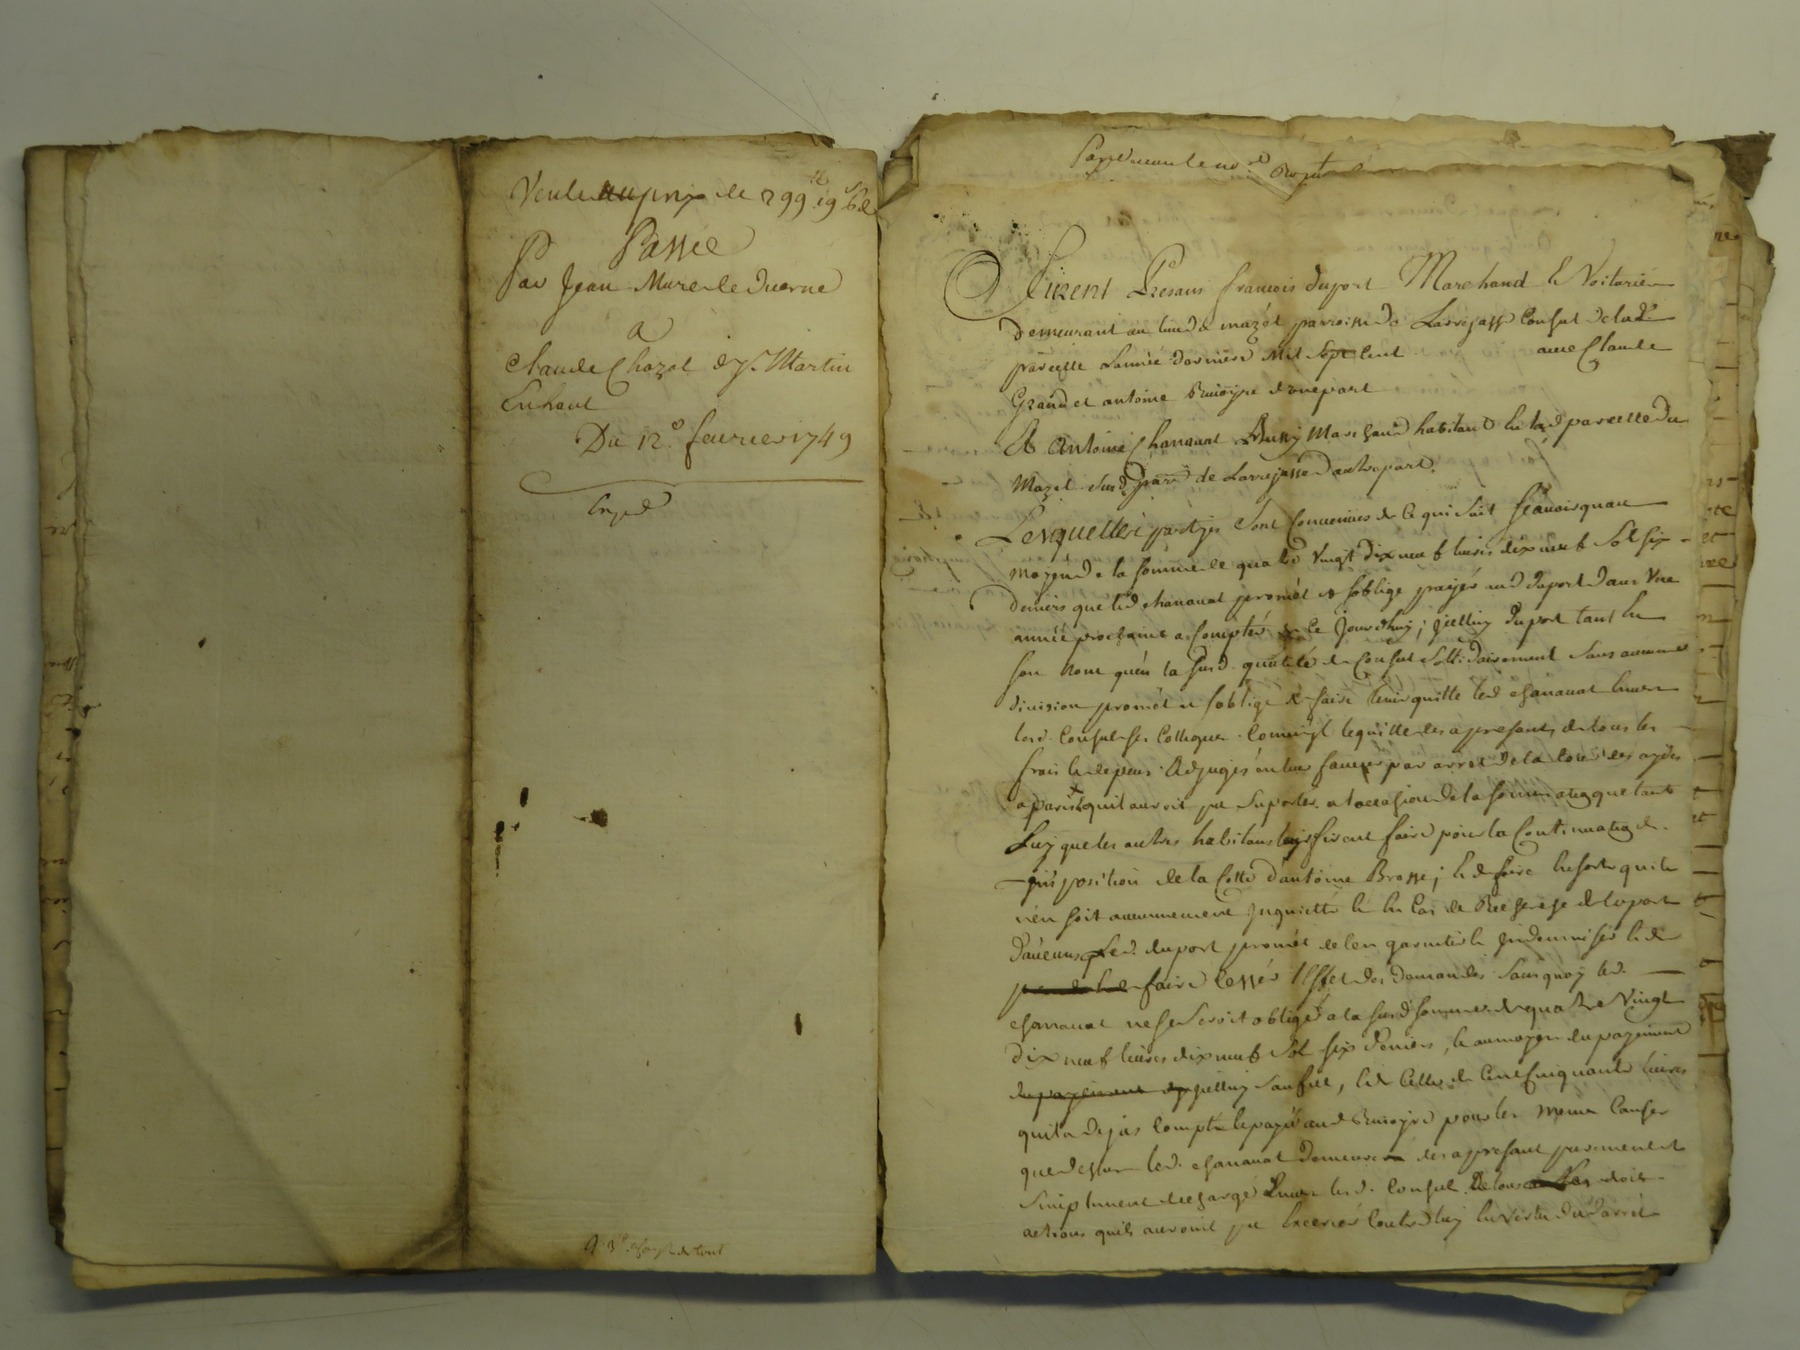 Vente au prix de 299 ₶ 19 s 6 d
Passée
Par Jean Mure de Duerne
A
Claude Chazot de St. Martin
En haut
Du 12e. fevrier 1749
Exped
Pardevant le nore.
Furent Presans francois duport Marchand & Voiturier
demeurant au lieu de mazet parroisse de Larrejasse Consul de lad.
parcelle L'année derniere Mil Sept Cent avec Claude
Grand et antoine d'une part
Et Antoine Chanavat Marchand habitant en lad. parcelle du
Mazet susd. parr. de Larrejasse d'autre part.
Lesquelles partyes sont Convenües de Ce qui Suit scavoir qu'au
moyen de la somme de quatre Vingt dix neuf livres dix neuf Sol six
deniers que led. chanavat promet et s'oblige payer aud. duport dans Une
année prochaine a Compter de Ce Jourdhuy ; Jcelluy duport tant En
son Nom qu'en la susd. qualité de Consul Sollidairement Sans aucune
division promét et s'oblige de faire tenir quitte led. chanavat Envers
lesd. Consul ses Collegues Comme Jl le quitte des apresant, de tous les
frais & depens Adjugés en leur faveur par arret de la Cour des aydes
a paris qu'il auroit pu Suporter a l'occasion de la sommation que tant
Luy que les autres habitans luy firent faire pour la Continuation
Jmposition de la Cotte d'antoine Brosse ; & de faire En sorte qu'il
n'en soit aucunement Jnquietté & En Cas de Recherche de la part
d'aucuns Led. duport promét de l'en garentir & Jndemniser & de
faire Cesser l'Effet des demandes Sans quoy led.
chanavat ne se Seroit obligé a la susd. somme de quatre Vingt
dix neuf livres dix neuf Sol six deniers, & au moyen du payement
du payement Jcelluy , & de Celle de Cent Cinquante livres
qu'il a dejas Compté & payé aud. pour les meme Causes
que dessus led. chanavat demeure des appresant purement et
Simplement dechargé Envers lesd. Consul De tous droits
actions qu'ils auroint pu Exercer Contre luy En Vertu dud. arrét